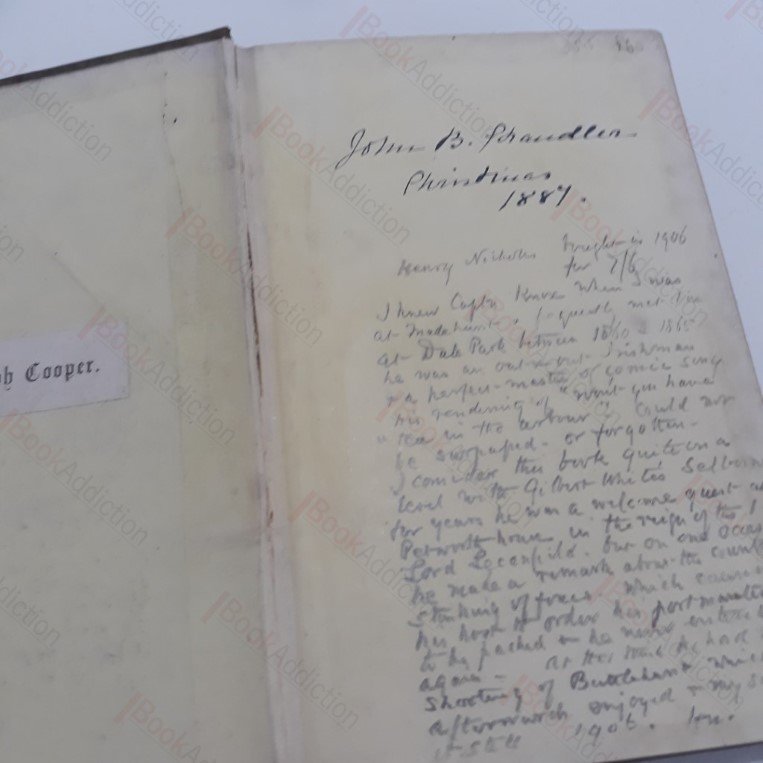 John B. Chandler
Christmas
1887.
Henry Nicholls bought in 1906
for 7/6
I knew Captn Knox when I was
at Midhurst, frequently met him
at Dale Park between 1860 & 1865
he was an out & out Irishman
& a perfect master of comic song
his rendering of "won't you have
"tea in the arbour" could not
be surpassed - or forgotten -
I consider this book quite on a
level with Gilbert White's Selborne
for years he was a welcome guest at
Petworth house in the reign of the 1
Lord Leconfield. but on one occas
he made a remark about the country
stinking of foxes which caused
his host to order his portmanteau
to be packed & he never entered
again - At this time he had
shooting of Burtlehunt which
afterwards enjoyed
it still 1906. H.N.
ph Cooper.
BookAddiction